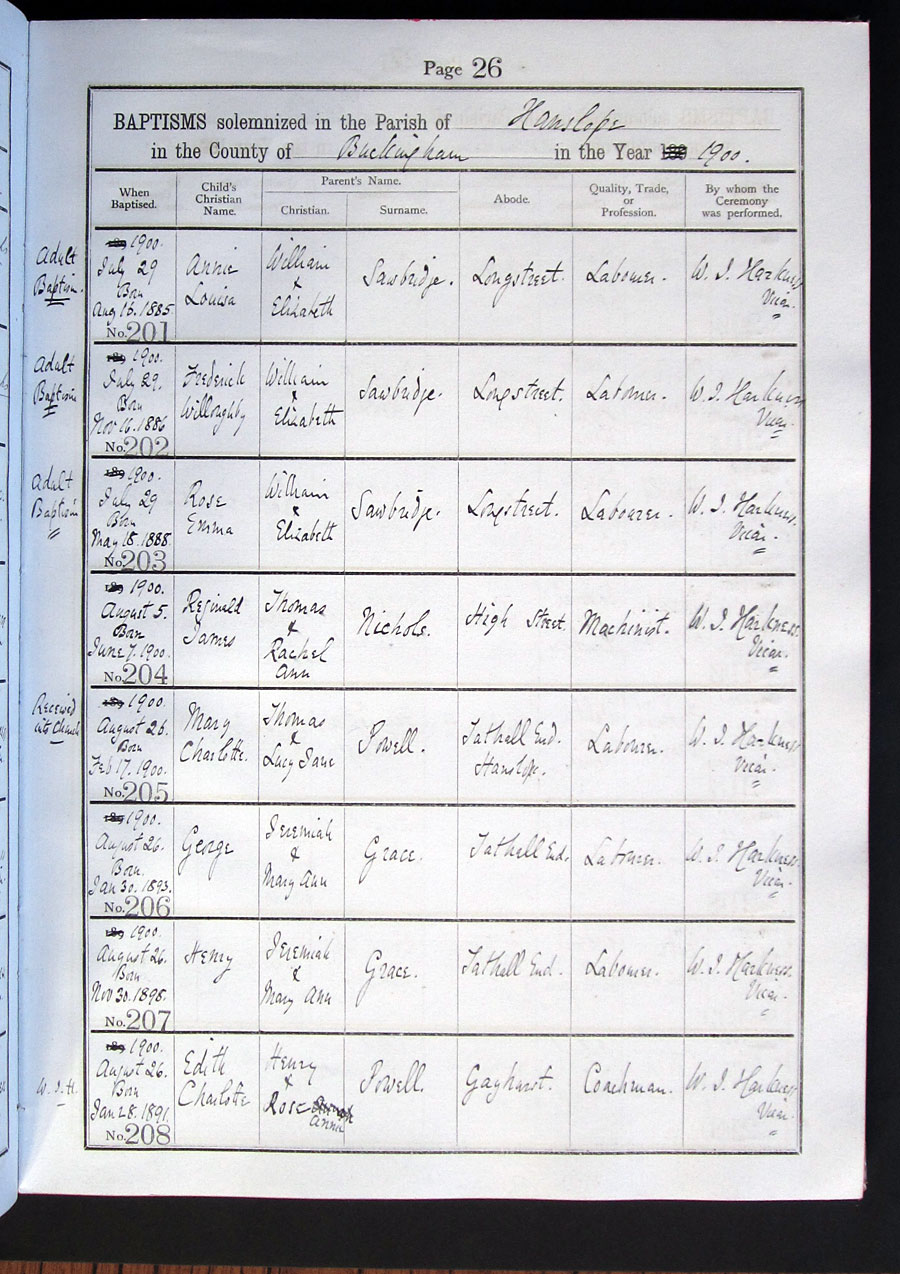 Page 26
BAPTISMS solemnized in the Parish of Hanslope
in the County of Buckingham in the Year 189 1900.
When Baptised.
Child's Christian Name.
Parent's Name.
Christian.
Surname.
Abode.
Quality, Trade, or Profession.
By whom the Ceremony was performed.
Adult
Baptism.
189 1900.
July 29
Born
Aug 16. 1885
No. 201
Annie
Louisa
William
&
Elizabeth
Sawbridge.
Longstreet.
Labourer.
W. J. Harkness
Vicar.
Adult
Baptism
189 1900.
July 29.
Born
Nov 16. 1886
No. 202
Frederick
Willoughby
William
&
Elizabeth
Sawbridge.
Longstreet.
Labourer.
W. J. Harkness
Vicar.
Adult
Baptism
189 1900.
July 29
Born
May 18. 1888.
No. 203
Rose
Emma
William
&
Elizabeth
Sawbridge.
Longstreet.
Labourer.
W. J. Harkness.
Vicar.
189 1900.
August 5.
Born
June 7. 1900.
No. 204
Reginald
James
Thomas
&
Rachel
Ann
Nichols.
High Street.
Machinist.
W. J. Harkness.
Vicar.
Received
into Church
189 1900.
August 26.
Born
Feb 17. 1900.
No. 205
Mary
Charlotte.
Thomas
&
Lucy Jane
Powell.
Tathall End.
Hanslope.
Labourer.
W. J. Harkness
Vicar.
189 1900.
August 26.
Born.
Jan 30. 1893.
No. 206
George
Jeremiah
&
Mary Ann
Grace.
Tathall End.
Labourer.
W. J. Harkness.
Vicar.
189 1900.
August 26.
Born
Nov 30. 1895.
No. 207
Henry
Jeremiah
&
Mary Ann
Grace.
Tathall End.
Labourer.
W. J. Harkness.
Vicar.
W. J. H.
189 1900.
August 26.
Born
Jan 28. 1891
No. 208
Edith
Charlotte
Henry
&
Rose
Anna
Powell.
Gayhurst.
Coachman.
W. J. Harkness
Vicar.